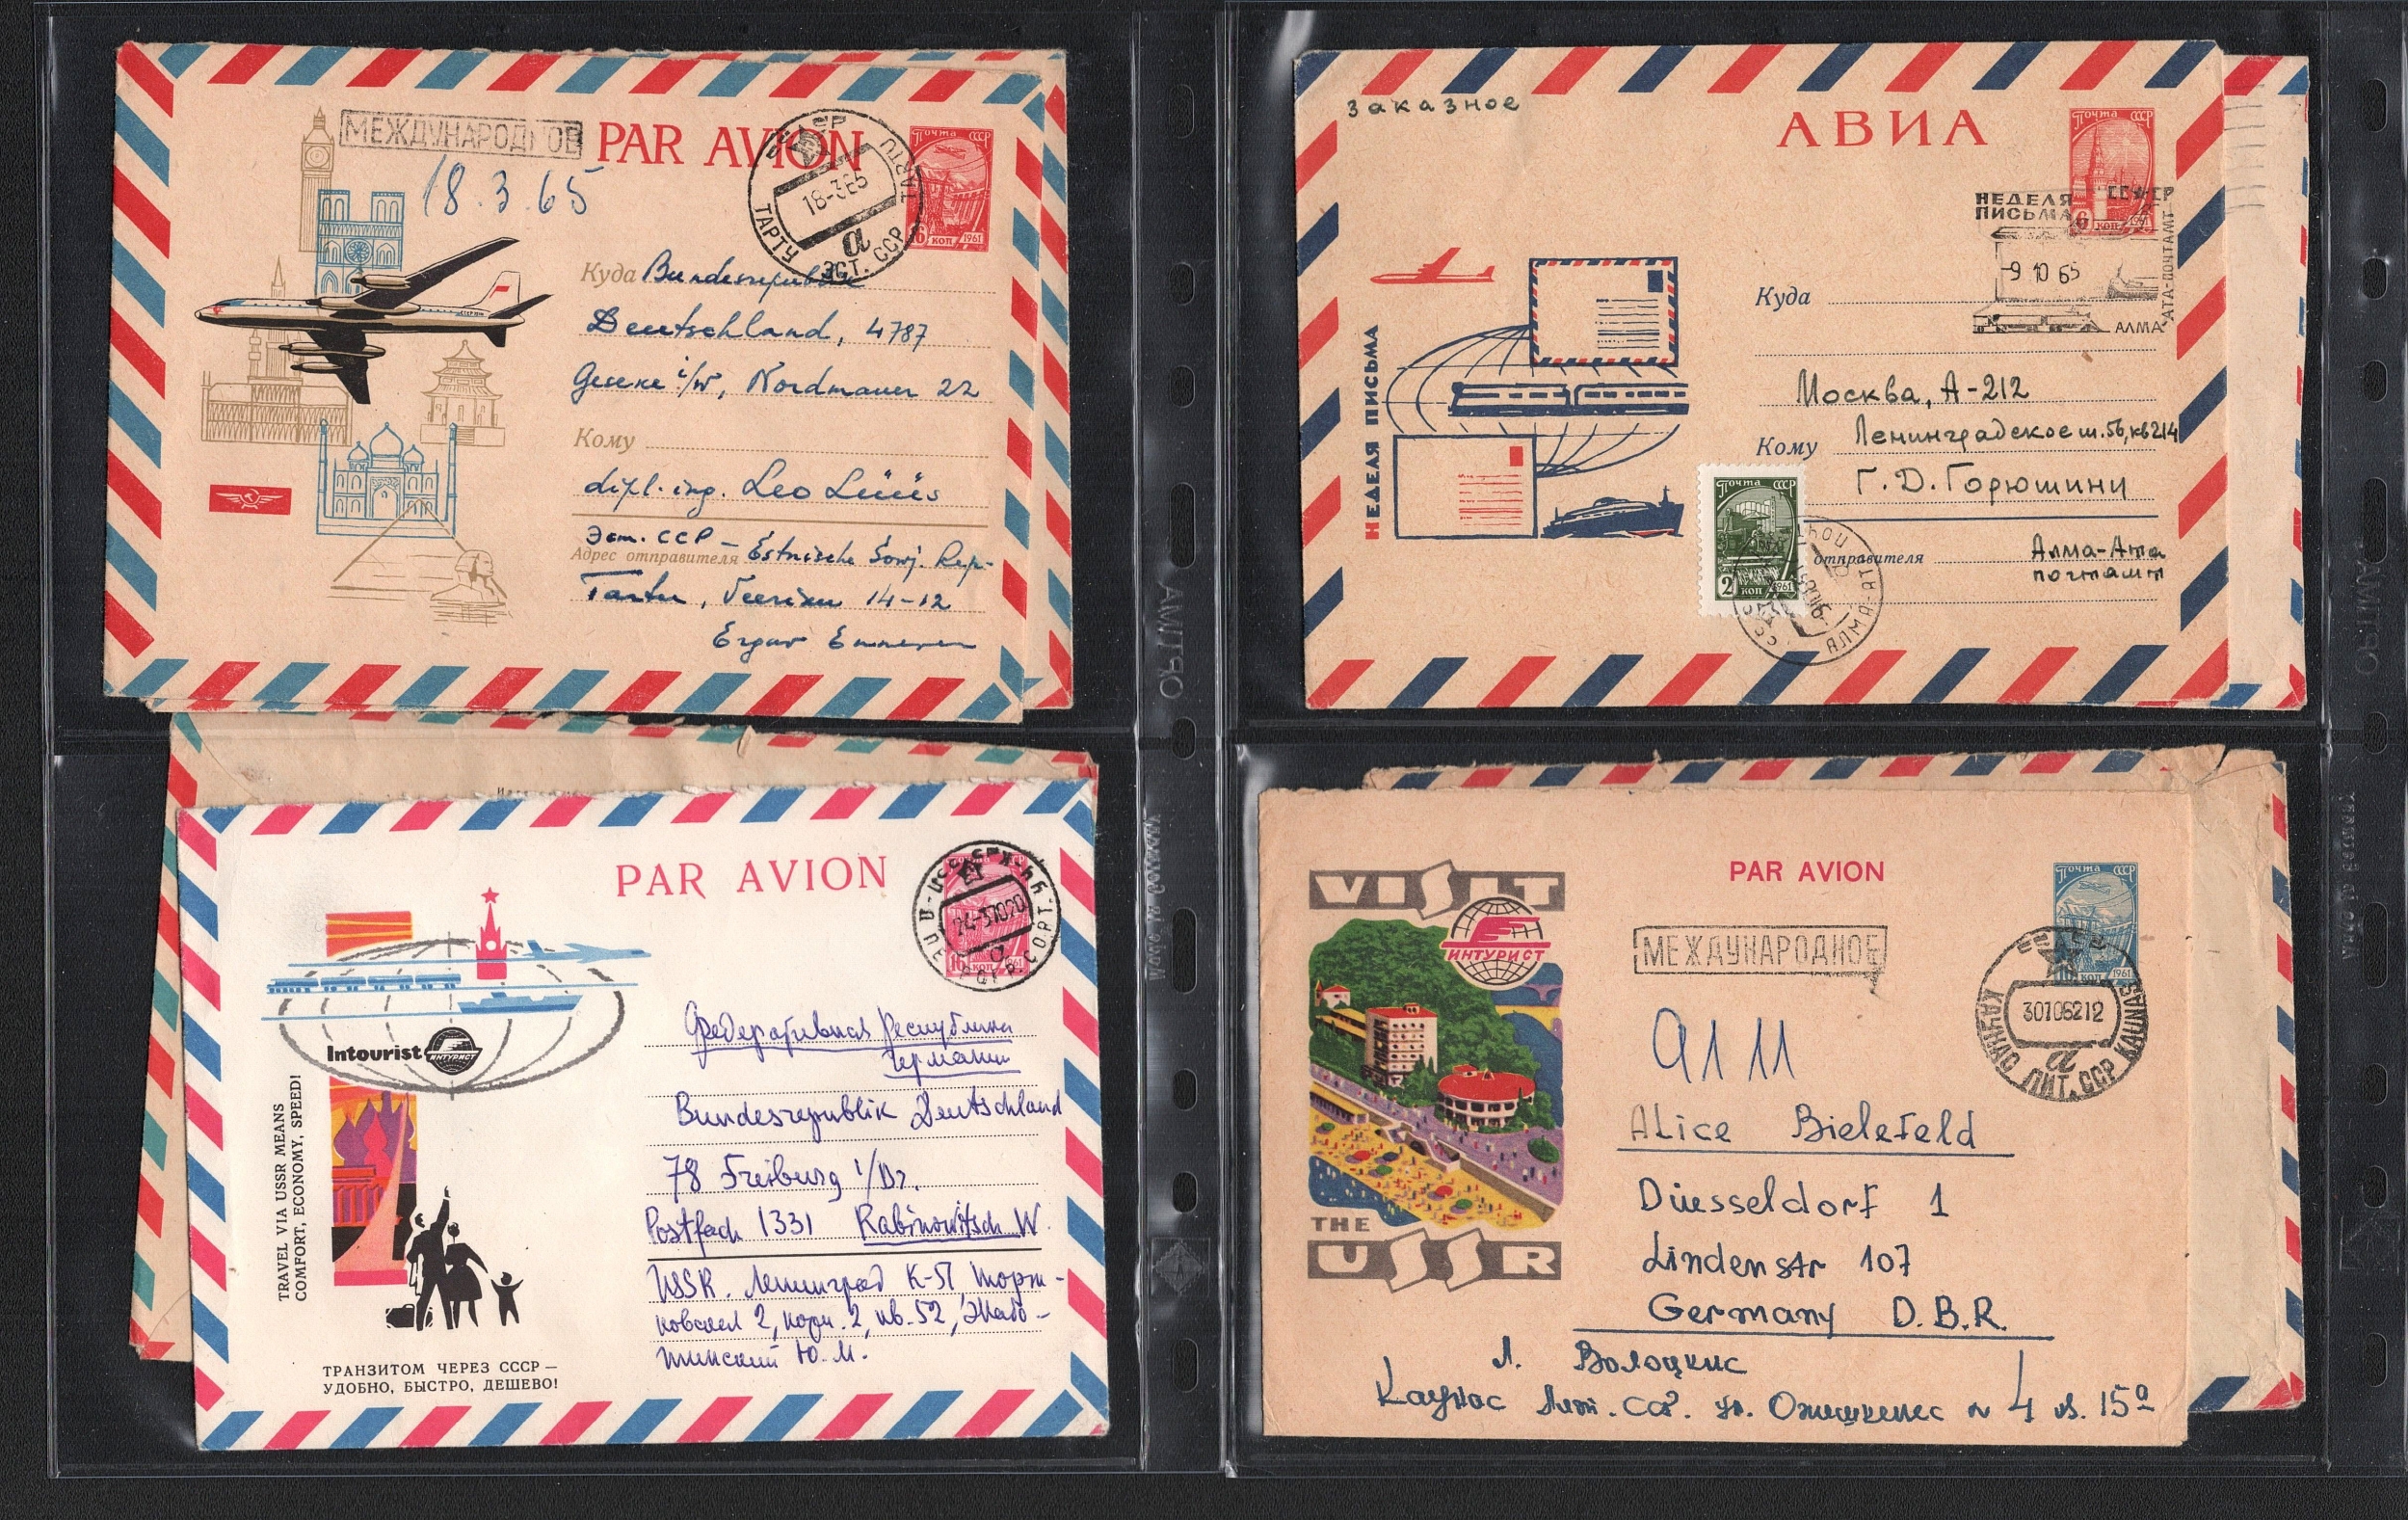 МЕЖДУНАРОДНОЕ
PAR AVION
18.3.65
TARTU
18-365
ТАРТУ
а
ЭСТ. ССР
Почта СССР
6 коп 1961
Куда
Deutschland, 4787
Geseke i/W, Nordmauer 22
Кому
dipl.-ing. Leo Lüüs
Эст. ССР – Estnische Sowj. Rep.
Адрес отправителя
Tartu, 14-12
заказное
АВИА
Почта СССР
6 коп 1961
НЕДЕЛЯ
ПИСЬМА
-9 10 65
АЛМА-АТА-ПОЧТАМТ
НЕДЕЛЯ ПИСЬМА
Куда
Москва, А-212
Кому
Ленинградское ш. 56, кв 214
Г. Д. Горюшину
Почта СССР
2 коп 1961
АЛМА-АТ
отправителя
Алма-Ата
почтамт
PAR AVION
Почта СССР
16 коп 1961
24-37020
Intourist
ИНТУРИСТ
TRAVEL VIA USSR MEANS
COMFORT, ECONOMY, SPEED!
ТРАНЗИТОМ ЧЕРЕЗ СССР —
УДОБНО, БЫСТРО, ДЕШЕВО!
Федеративная Республика
Германии
Bundesrepublik Deutschland
78 Freiburg i/Br.
Postfach 1331 Rabinowitsch W.
USSR. Ленинград К-51, Торж-
ковская 2, корп. 2, кв. 52,
Ю. М.
VISIT
ИНТУРИСТ
THE
USSR
PAR AVION
МЕЖДУНАРОДНОЕ
Почта СССР
коп 1961
30106212
КАУНАС ЛИТ. ССР KAUNAS
9111
Alice Bielefeld
Duesseldorf 1
Lindenstr 107
Germany D.B.R.
Л. Волоцкис
Каунас Лит. ССР. ул. Ожешкенес № 4 кв. 15а